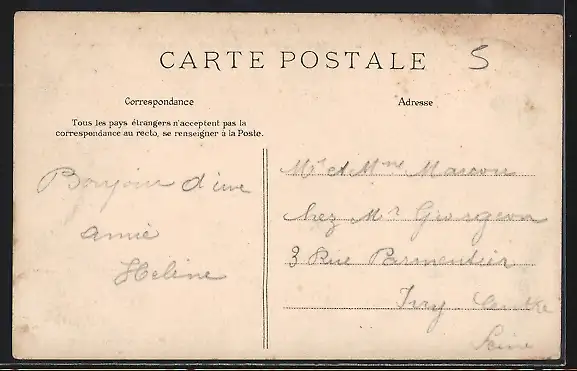 CARTE POSTALE
5
Correspondance
Adresse
Tous les pays étrangers n'acceptent pas la
correspondance au recto, se renseigner à la Poste.
Bonjour d'une
amie
Hélène
Mr et Mme Marron
chez Mr Grosgeron
3 Rue Parmentier
Ivry Centre
Seine